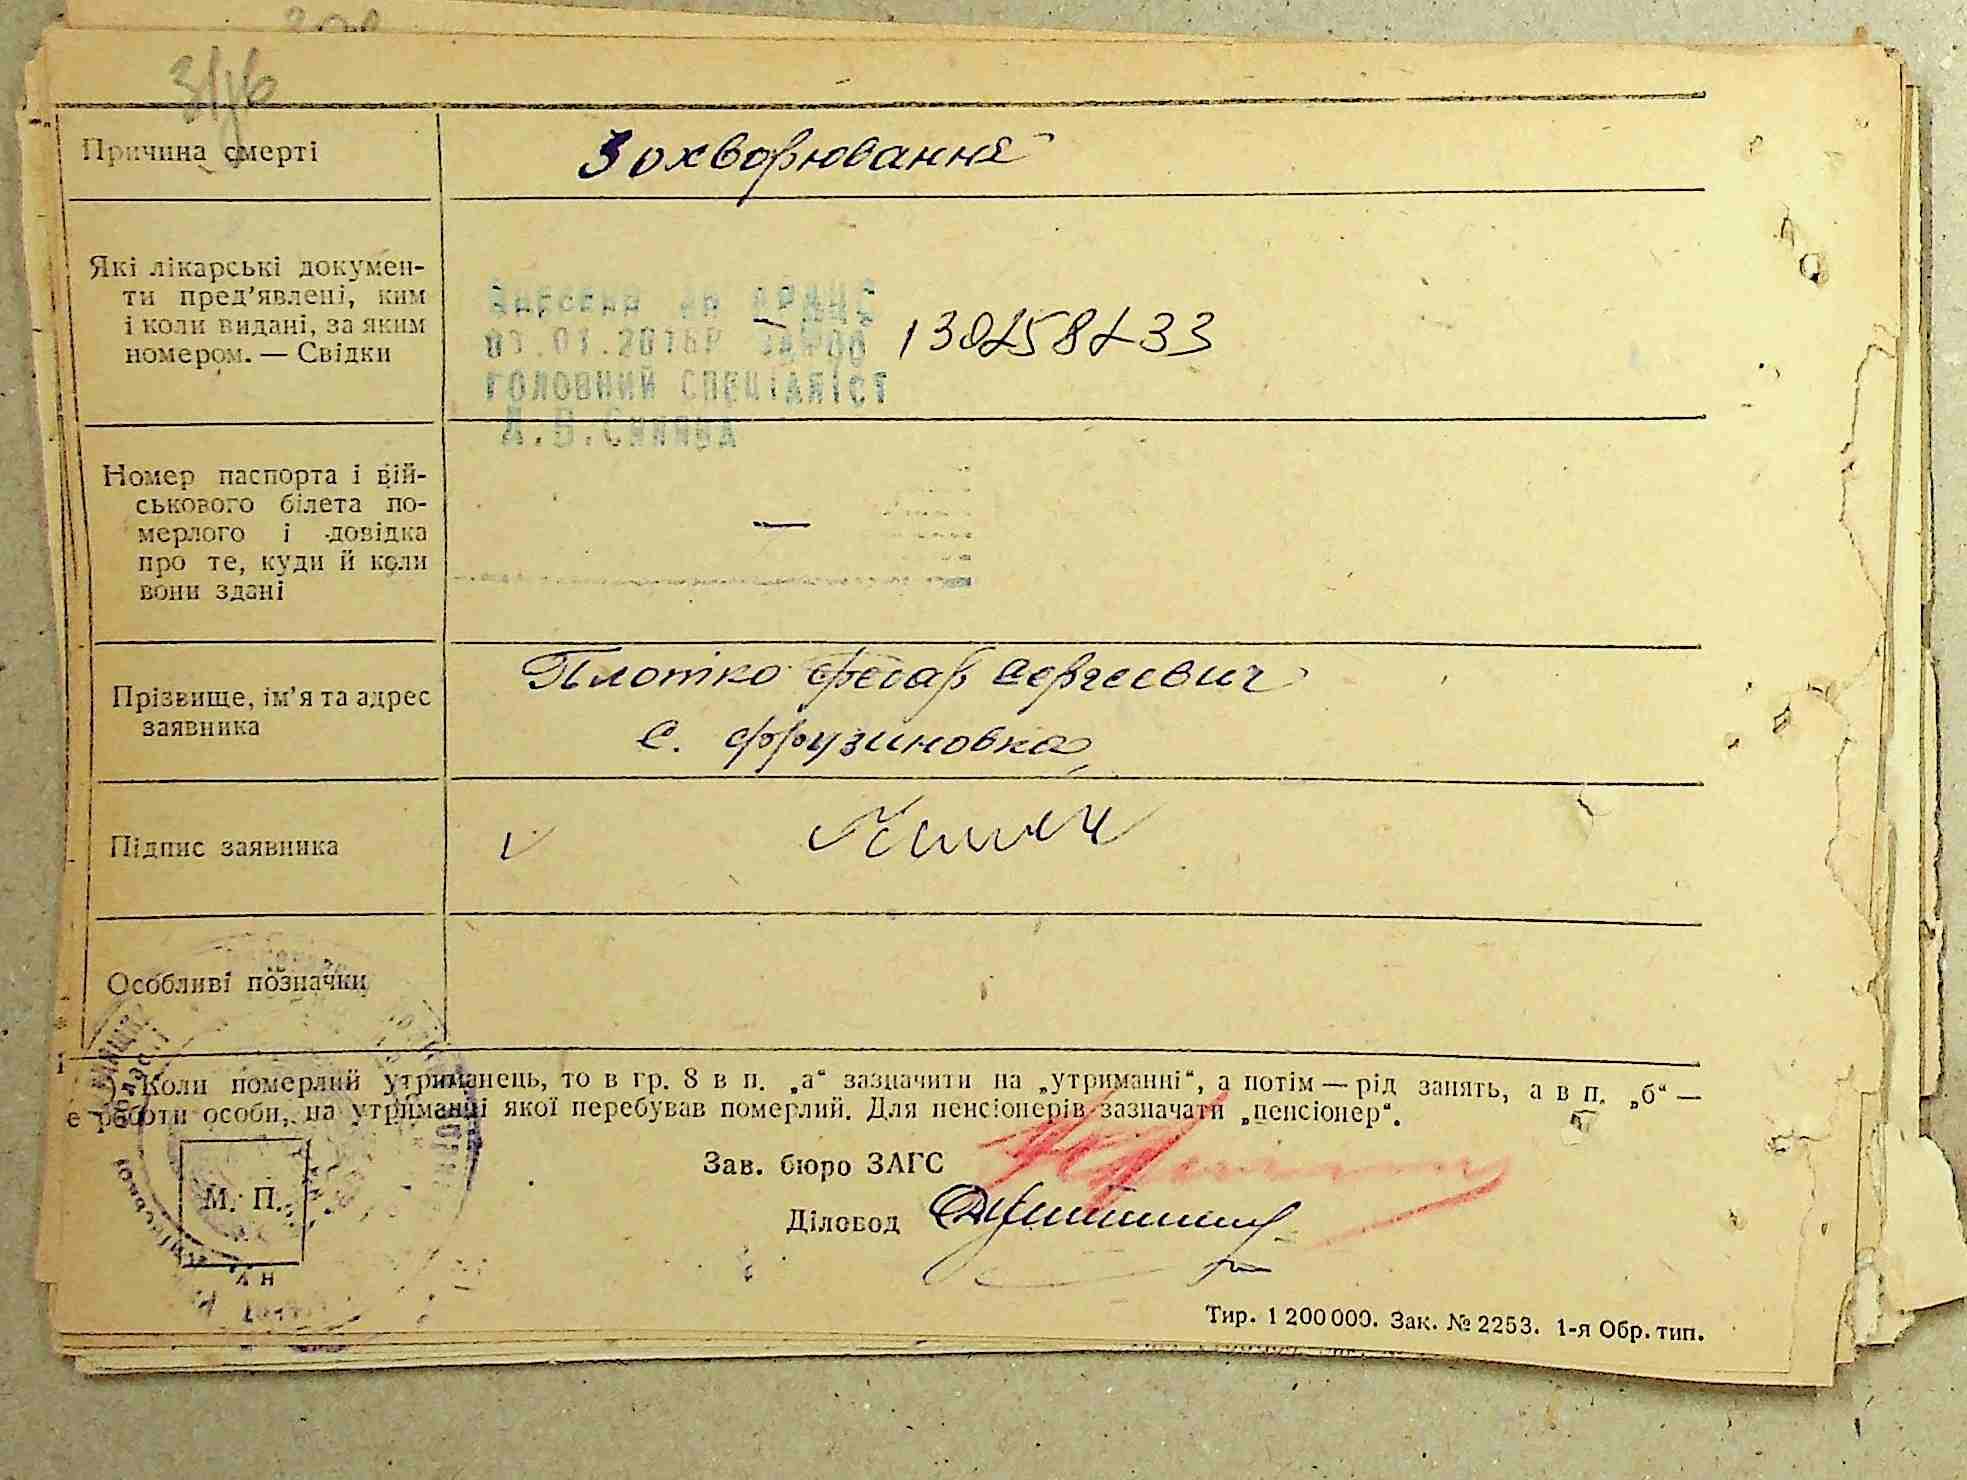 Причина смерті
Зохворювання
Які лікарські докумен-
ти пред'явлені, ким
і коли видані, за яким
номером. — Свідки
—
ГОЛОВНИЙ СПЕЦІАЛІСТ
Номер паспорта і вій-
ськового білета по-
мерлого і довідка
про те, куди й коли
вони здані
—
Прізвище, ім'я та адрес
заявника
Плотко Сергеевич
с. Фрузиновка
Підпис заявника
Особливі позначки
Коли померлий утриманець, то в гр. 8 в п. „а“ зазначити на „утриманні“, а потім — рід занять, а в п. „б“ —
е роботи особи, на утриманні якої перебував померлий. Для пенсіонерів зазначати „пенсіонер“.
Зав. бюро ЗАГС
М. П.
Діловод
Тир. 1 200 000. Зак. № 2253. 1-я Обр. тип.